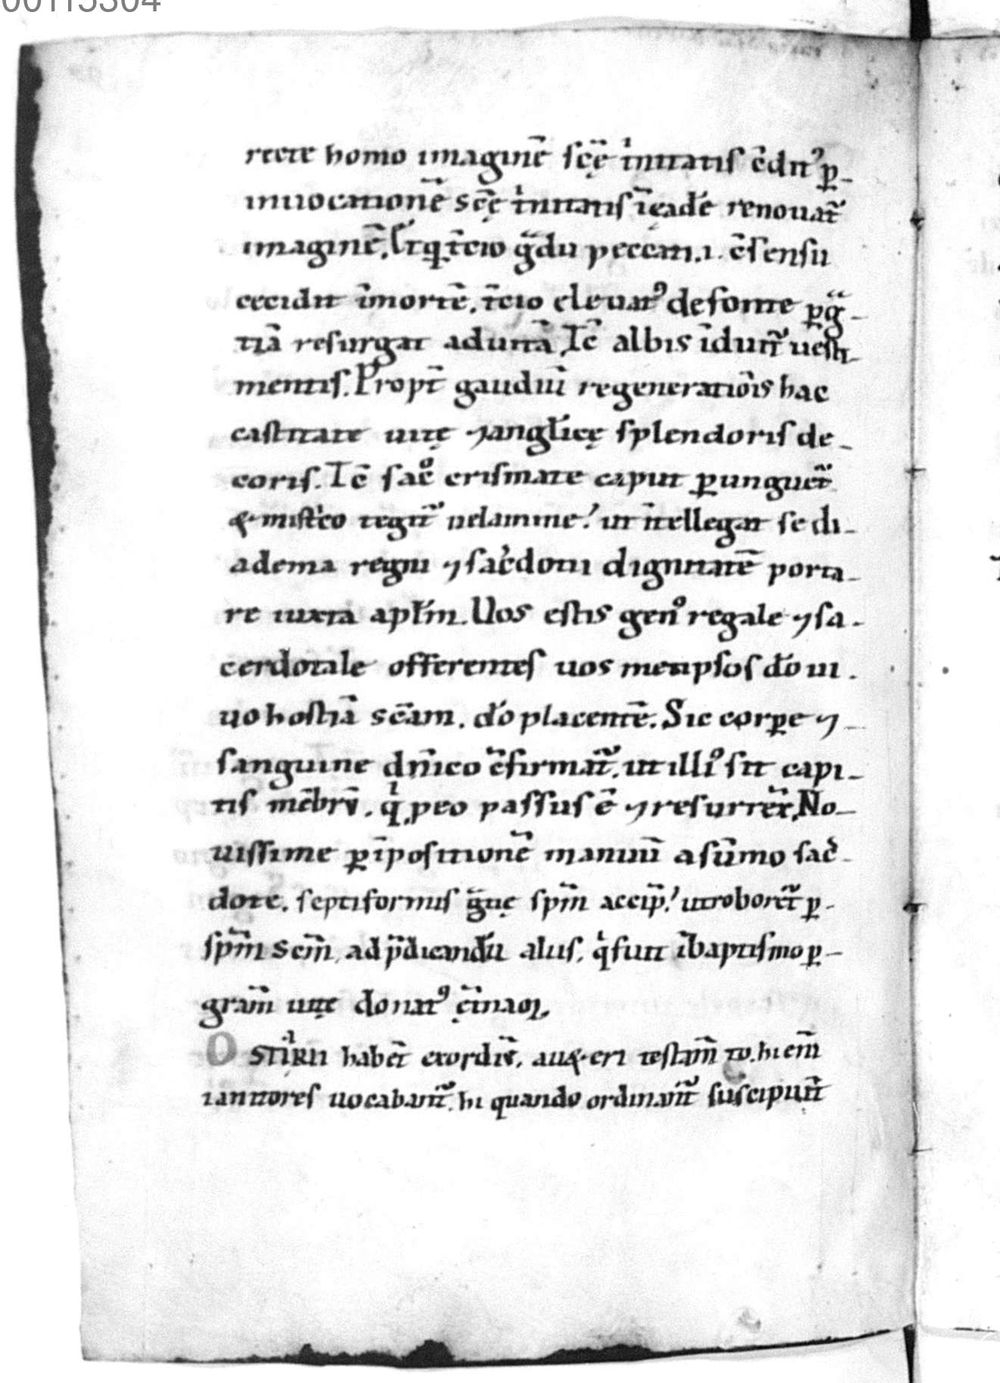 00115304
recte homo imaginē sc̄ę t̓nitatis c̄dit᾽ ꝑ-
inuocationē sc̄ę t̓nitatis īeadē renouat᷑
imaginē. Et q̇ t̄cio g̃du peccati .i. c̄sensu
cecidit īmortē. t̄cio eleuat᾽ de fonte ꝑ g̃-
tiā resurgat ad uitā. Ic̄ albis īdunt᷑ uesti-
mentis. Propt̄ gaudiū regenerationis hac
castitate uitę ⁊ anglicę splendoris de-
coris. Ic̄ sac̊ crismate caput ꝑunguet᷑
& mistico tegit᷑ uelamine. ut ītellegat se di-
adema regni ⁊ sac̓dotii dignitatē porta-
re iuxta aplm̄. Uos estis gen᾽ regale ⁊ sa-
cerdotale offerentes uos metipsos dō ui-
uo hostiā sc̄am. dō placentē. Sic corpe ⁊
sanguine dn̄ico c̄firmat᷑. ut illi᾽ sit capi-
tis mēbrū. q̇ ꝓ eo passus ē ⁊ resurrex̄. No-
uissime ꝑ īpositionē manuū a sūmo sac̓-
dote. septiformis g̃tię sp̄m accip̄. ut roboret᷑ ꝑ-
sp̄m sc̄m, ad p̄dicandū aliis, q̇ fuit ī baptismo ꝑ-
gram̄ uitę donat᾽ ęt̄naꝝ.
OSTIARII habet exordiū. a uet&eri testam̄to. hi em̄
ianitores uocabant᷑. hi quando ordinant᷑ suscipiunt